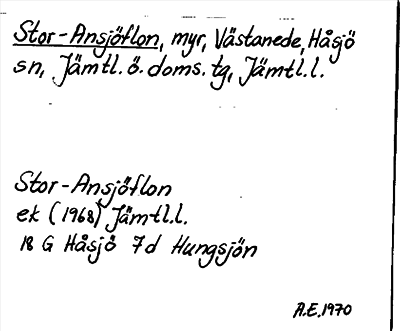 Stor-Ansjöflon, myr, Västanede, Håsjö
sn, Jämtl. ö. doms. tg, Jämtl. l.
Stor-Ansjöflon
ek (1968) Jämtl. l.
18 G Håsjö 7d Hungsjön
A.E. 1970